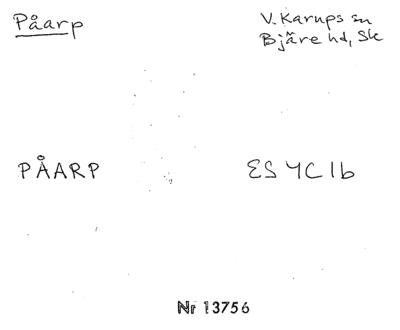 Påarp
V. Karups sn
Bjäre hd, Sk
PÅARP
ES 4C1b
Nr 13756